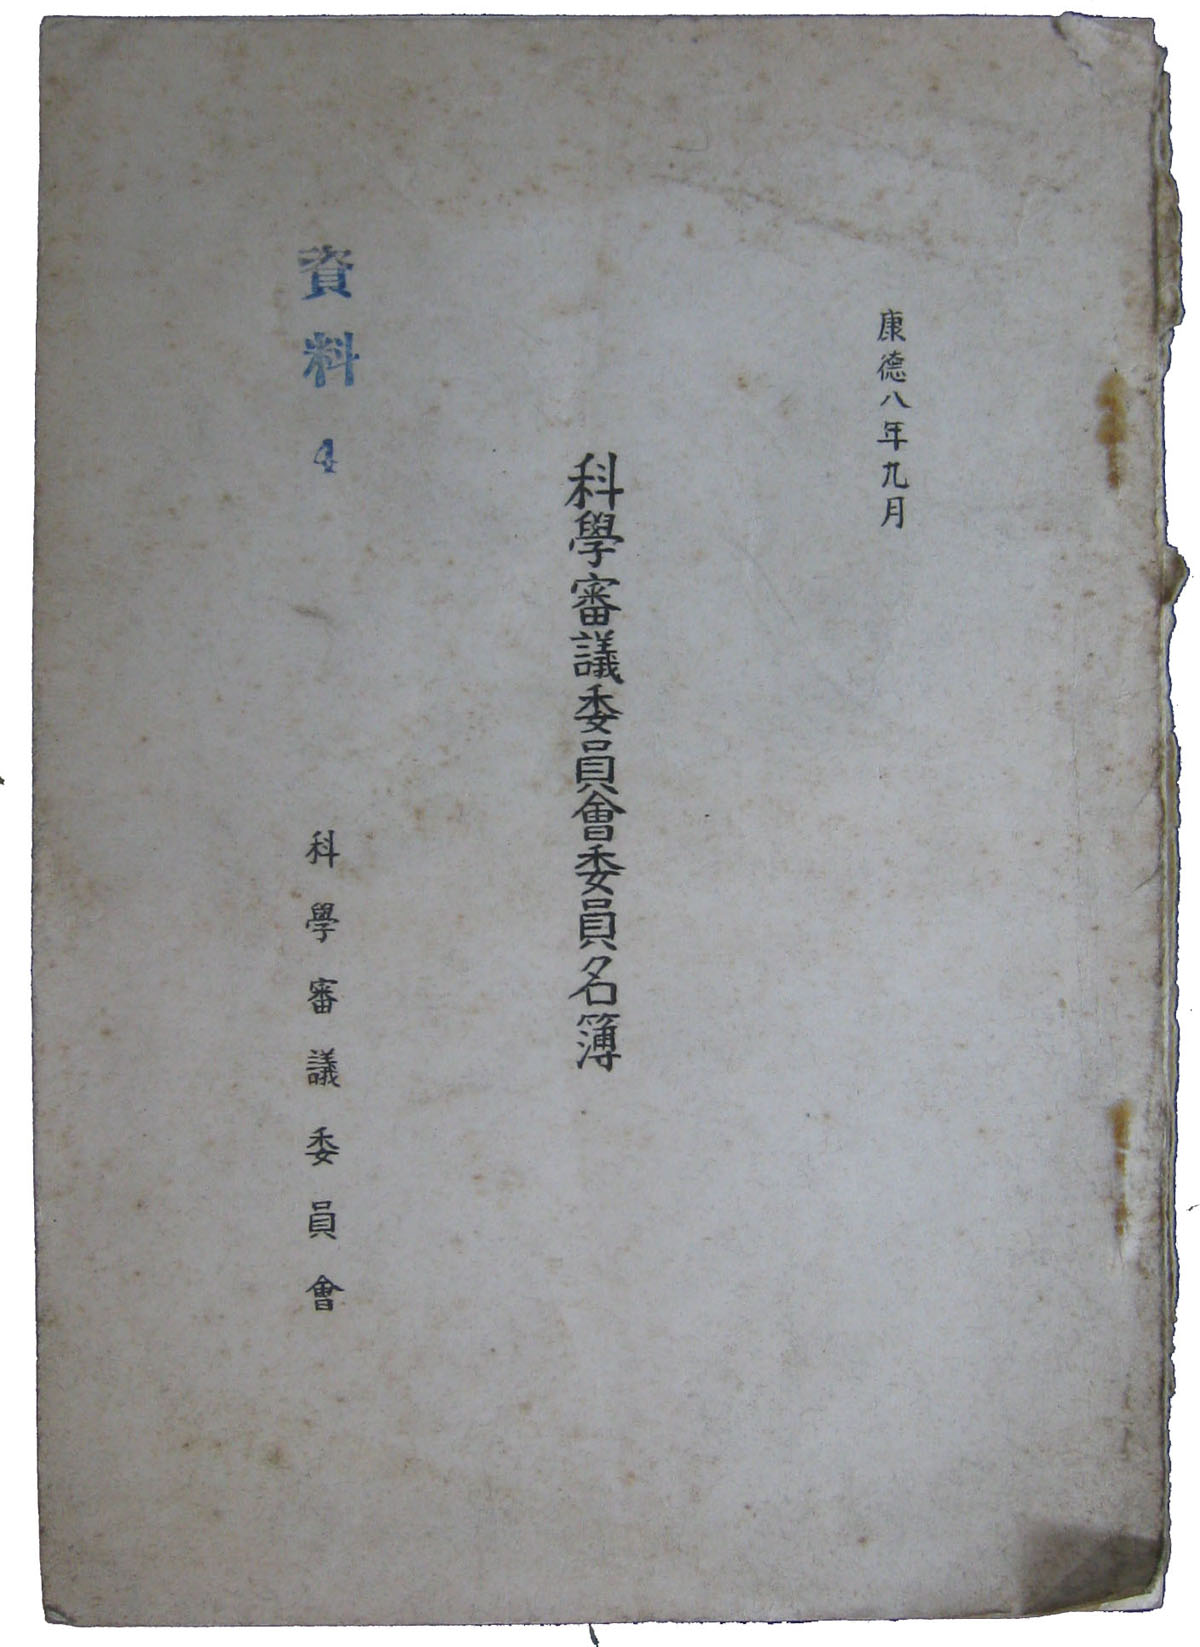 康德八年九月
科學審議委員會委員名簿
資料 4
科學審議委員會